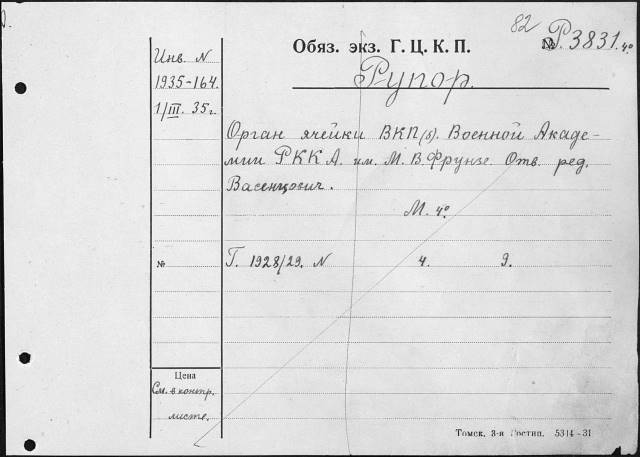 82
Обяз. экз. Г. Ц. К. П.
№ Р3831. 4º
Рупор.
Инв. N
1935-164.
1/III. 35 г.
Орган ячейки ВКП(б). Военной Акаде-
мии РККА. им. М. В. Фрунзе. Отв. ред.
Васенцович.
М. 4º
№
Г. 1928/29. N 4. 9.
Цена
См. в контр.
листе.
Томск. 3-я Гостип. 5314-31